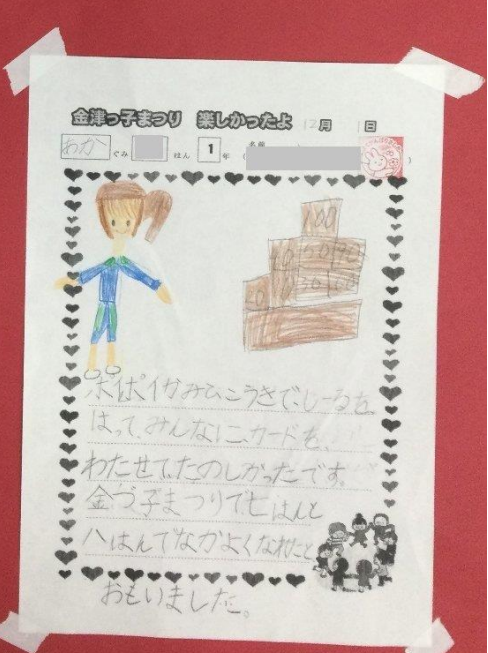 金津っ子まつり 楽しかったよ 12月 日
わか ぐみ はん 1 年 名前
100
ポイポイかみひこうきで、しーるを
はって、みんなに、カードを、
わたせてたのしかったです。
金づ子まつりで七はんと
八はんでなかよくなれたと
おもいました。